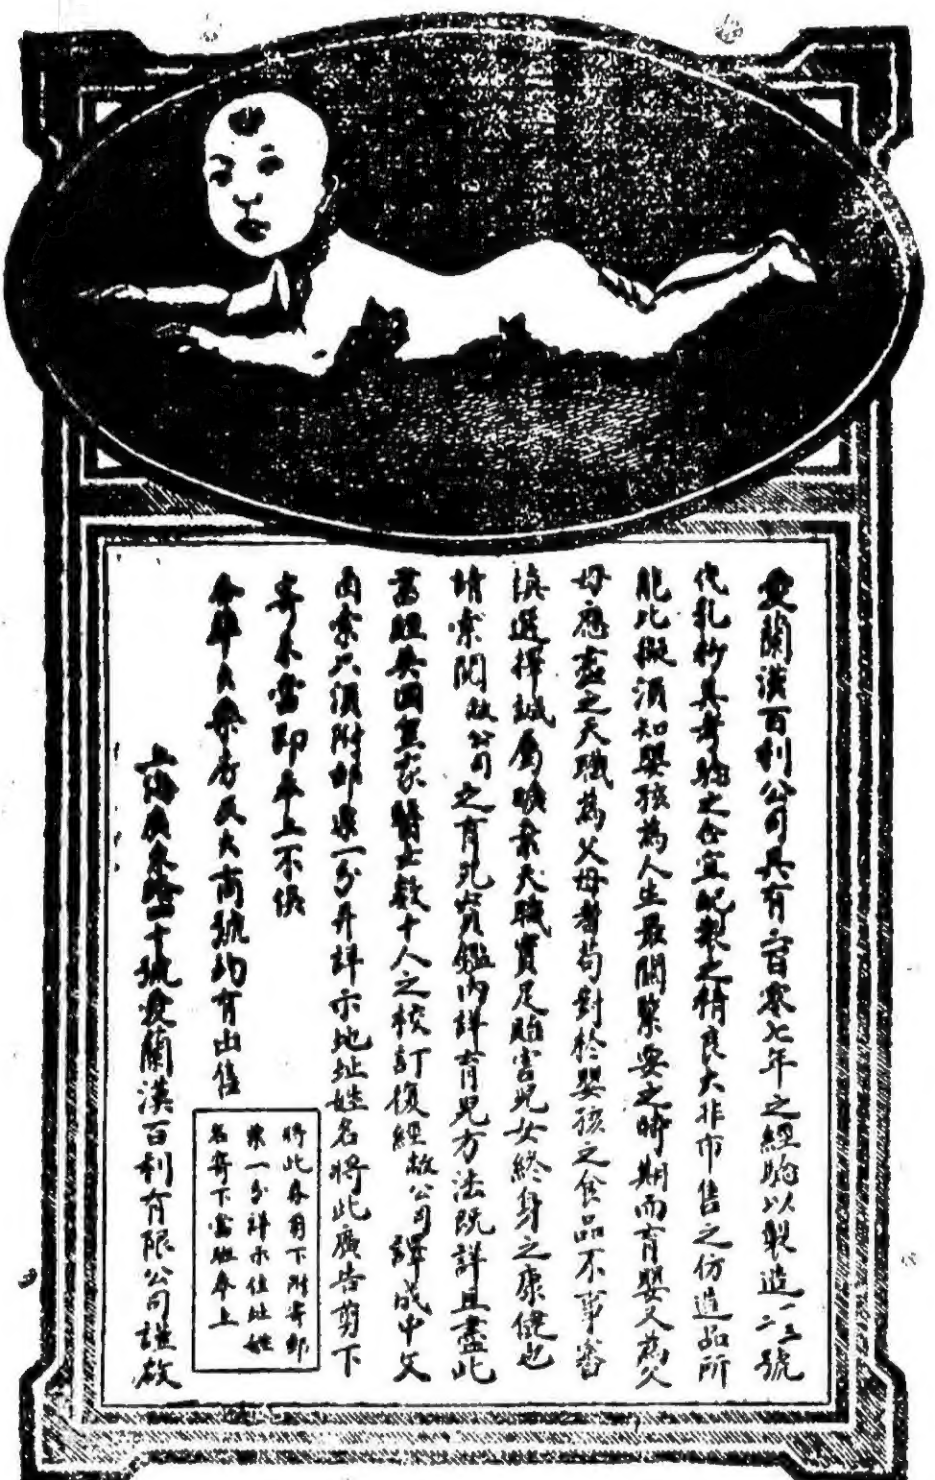 愛蘭漢百利公司具有二百零七年之經驗以製造一二三號
代乳粉其考驗之合宜配製之精良大非市售之仿造品所
能比擬須知嬰孩為人生最關緊要之時期而育嬰又為父
母應盡之天職為父母者苟對於嬰孩之食品不事審
慎選擇誠屬曠棄天職實足貽害兒女終身之康健也
請索閱敝公司之育兒寶鑑內詳育兒方法既詳且盡此
書經英國兒家醫士數十人之校訂復經敝公司譯成中文
函索只須附郵票一分并詳示地址姓名將此廣告剪下
寄來當即奉上不悞
各埠大藥房及大商號均有出售
上海 路四十號愛蘭漢百利有限公司謹啟
將此券剪下附寄郵
票一分詳示住址姓
名寄下當即奉上